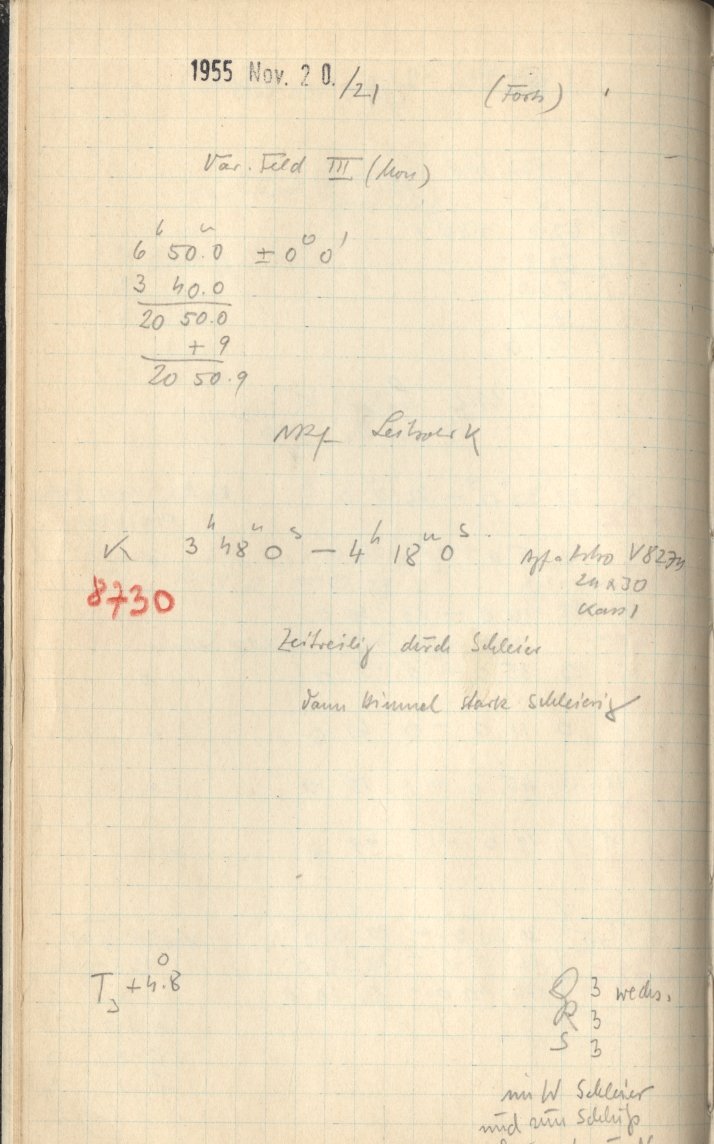 1955 Nov. 20./21 (Förs)
Var. Feld III (Mon)
6h 50.0m ± 0° 0'
3 40.0
20 50.0
+ 9
20 50.9
K 3h 48m 0s – 4h 18m 0s Agfa Astro V8274
8730
24 x 30
Kass 1
Zeitweilig durch Schleier
dann Himmel stark schleierig
T3 +4.8°
Q 3 wechs.
R 3
S 3
im W Schleier
und zum Schluß